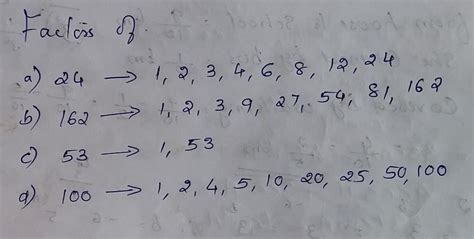 Factors of
a) 24 → 1, 2, 3, 4, 6, 8, 12, 24
b) 162 → 1, 2, 3, 9, 27, 54, 81, 162
c) 53 → 1, 53
d) 100 → 1, 2, 4, 5, 10, 20, 25, 50, 100